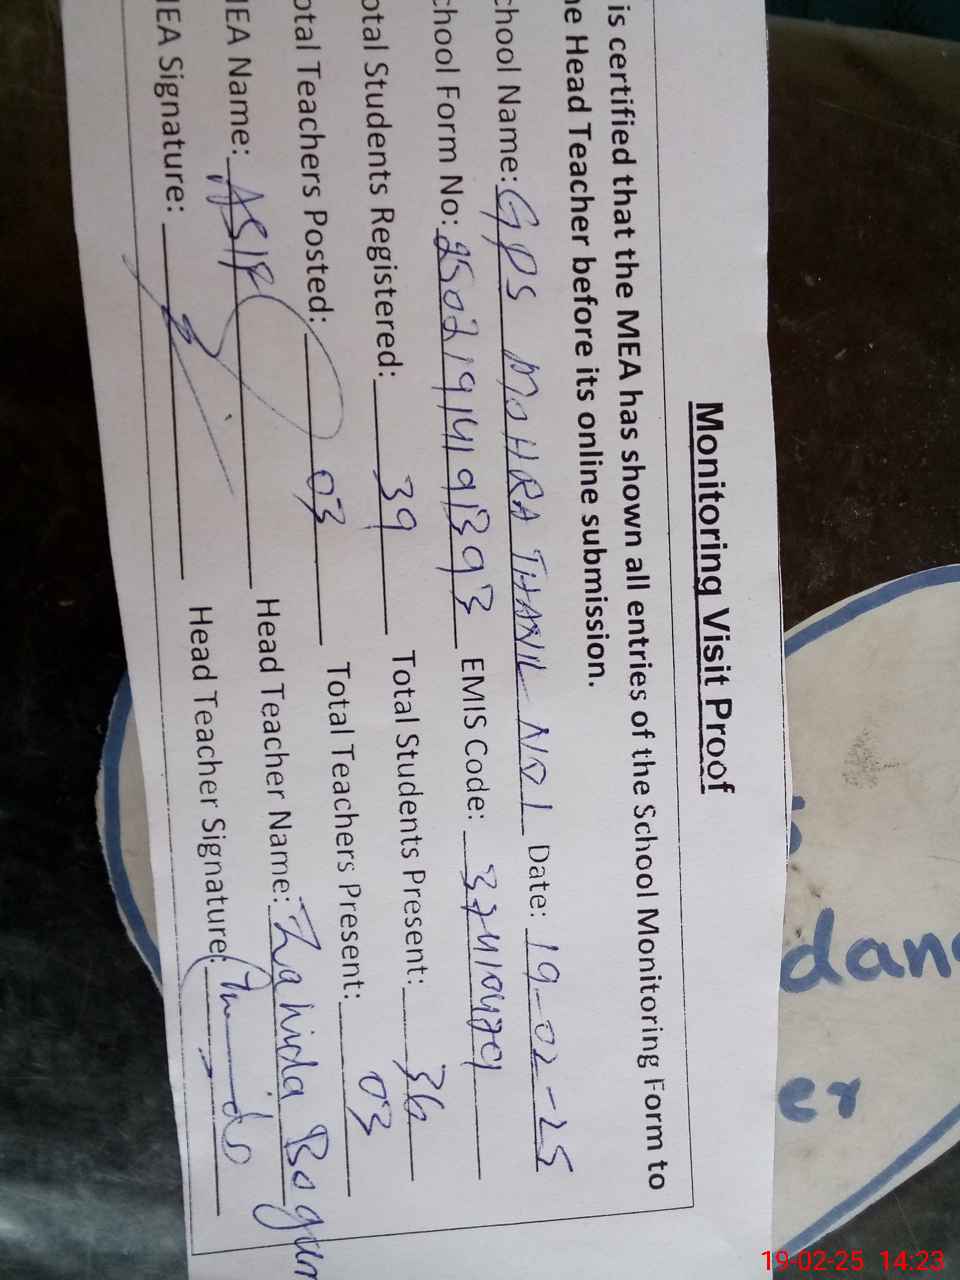 Monitoring Visit Proof
is certified that the MEA has shown all entries of the School Monitoring Form to
he Head Teacher before its online submission.
chool Name: GPS MOHRA THANIL NO1 Date: 19-02-25
chool Form No: 250219141919393 EMIS Code:
otal Students Registered: 39 Total Students Present: 36
otal Teachers Posted: 03 Total Teachers Present: 03
MEA Name: ASIF Head Teacher Name: Zahida Begum
MEA Signature: Head Teacher Signature:
dan
er
19-02-25 14:23